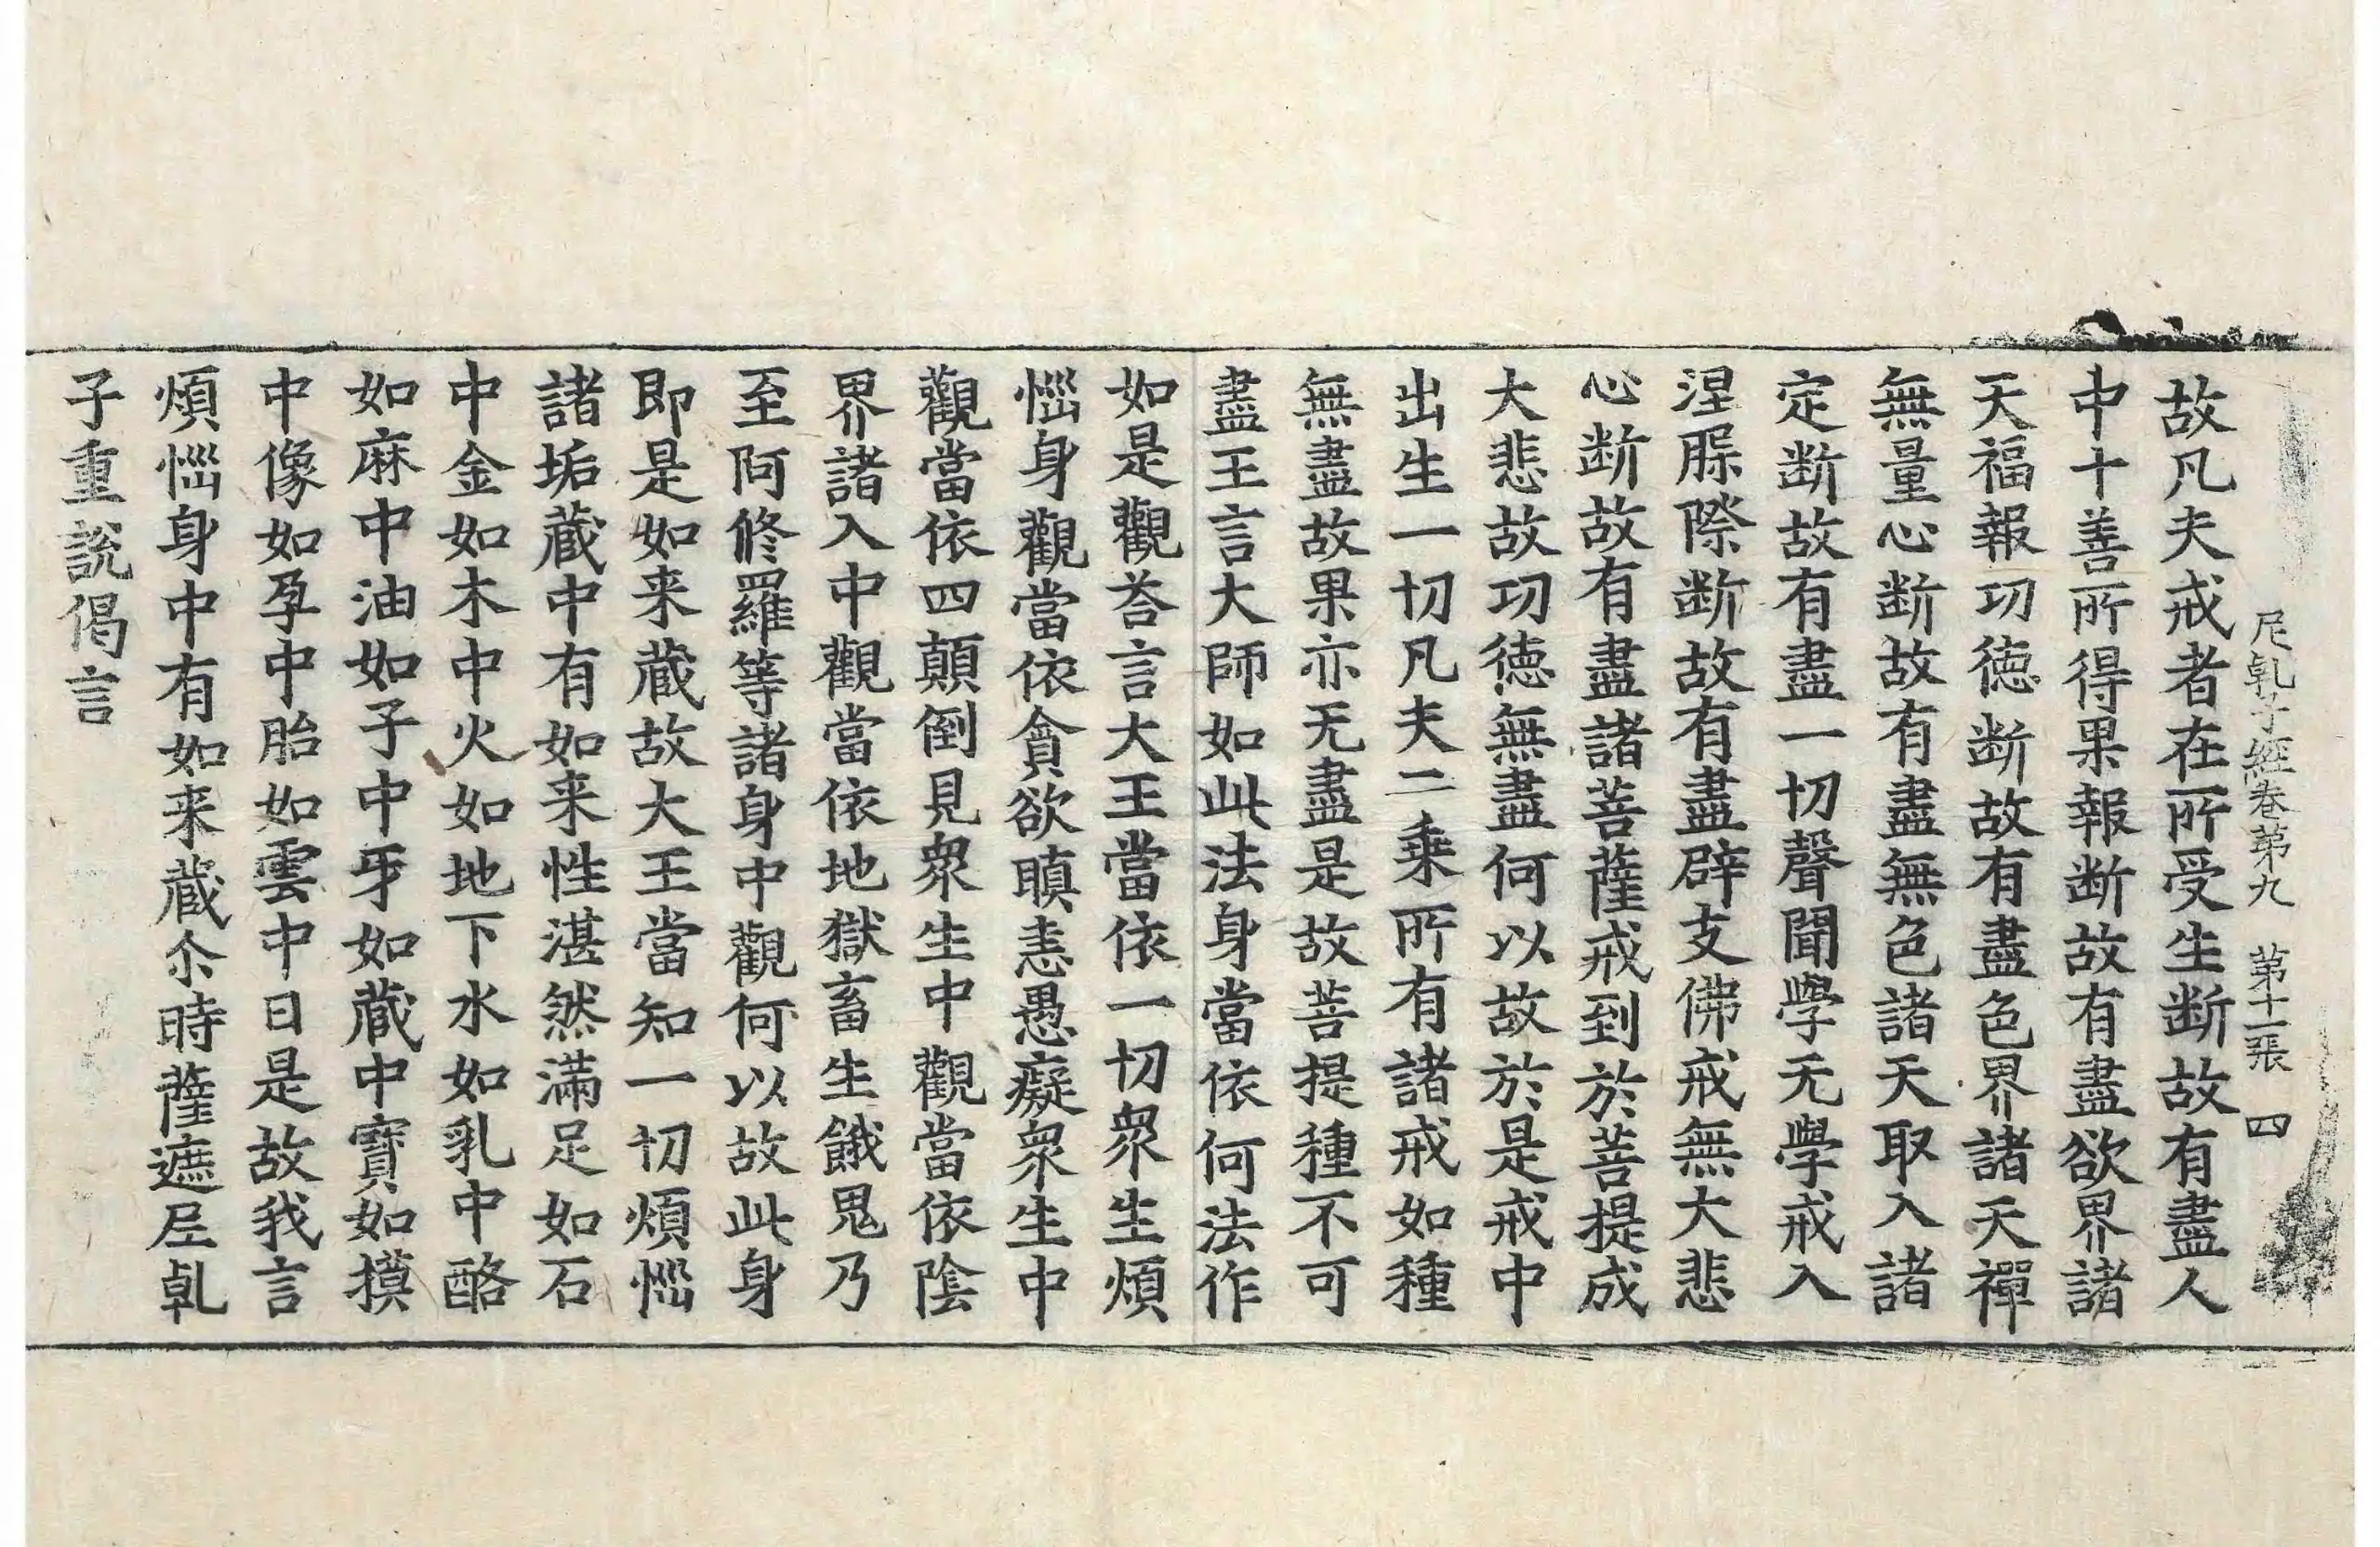 尼乹子經卷第九　第十一張　四
故凡夫戒者在所受生断故有盡人
中十善所得果報断故有盡欲界諸
天福報功徳断故有盡色界諸天禪
無量心断故有盡無色諸天取入諸
定断故有盡一切聲聞學无學戒入
涅槃際断故有盡辟支佛戒無大悲
心断故有盡諸菩薩戒到於菩提成
大悲故功徳無盡何以故於是戒中
出生一切凡夫二乗所有諸戒如種
無盡故果亦无盡是故菩提種不可
盡王言大師如此法身當依何法作
如是觀荅言大王當依一切衆生煩
惱身觀當依貪欲瞋恚愚癡衆生中
觀當依四顛倒見衆生中觀當依陰
界諸入中觀當依地獄畜生餓鬼乃
至阿修羅等諸身中觀何以故此身
即是如来蔵故大王當知一切煩惱
諸垢蔵中有如来性湛然滿足如石
中金如木中火如地下水如乳中酪
如麻中油如子中牙如蔵中寶如摸
中像如孕中胎如雲中日是故我言
煩惱身中有如来蔵尒時薩遮尼乹
子重說偈言